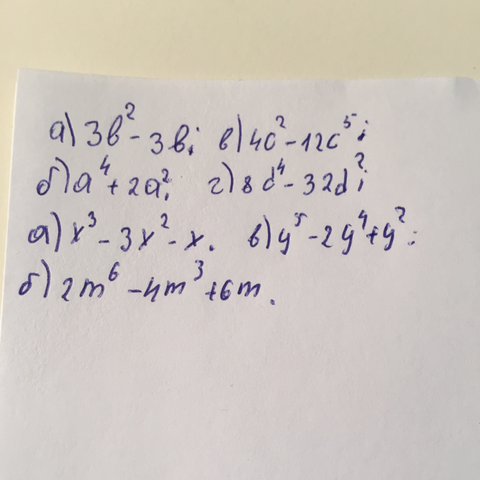 а) 3b² - 3b; в) 4c² - 12c⁵;
б) a⁴ + 2a²; г) 8d⁴ - 32d²;
а) x³ - 3x² - x. в) y⁵ - 2y⁴ + y²;
б) 2m⁶ - 4m³ + 6m.